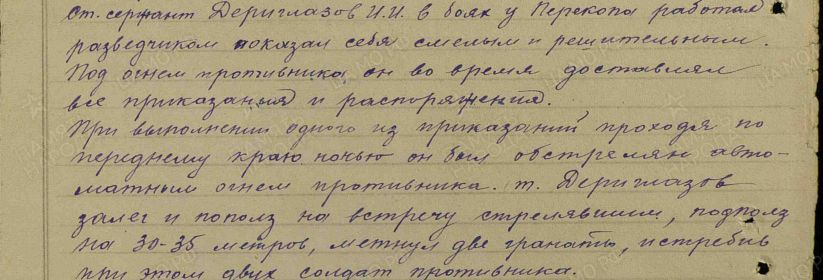 ст. сержант Дериглазов И.И. в боях у Перекопа работая
разведчиком показал себя смелым и решительным.
Под огнем противника он во время доставлял
все приказания и распоряжения.
При выполнении одного из приказаний проходя по
переднему краю ночью он был обстрелян авто-
матным огнем противника. т. Дериглазов
залег и пополз на встречу стрелявшим, подполз
на 30-35 метров, метнул две гранаты, истребив
при этом двух солдат противника.